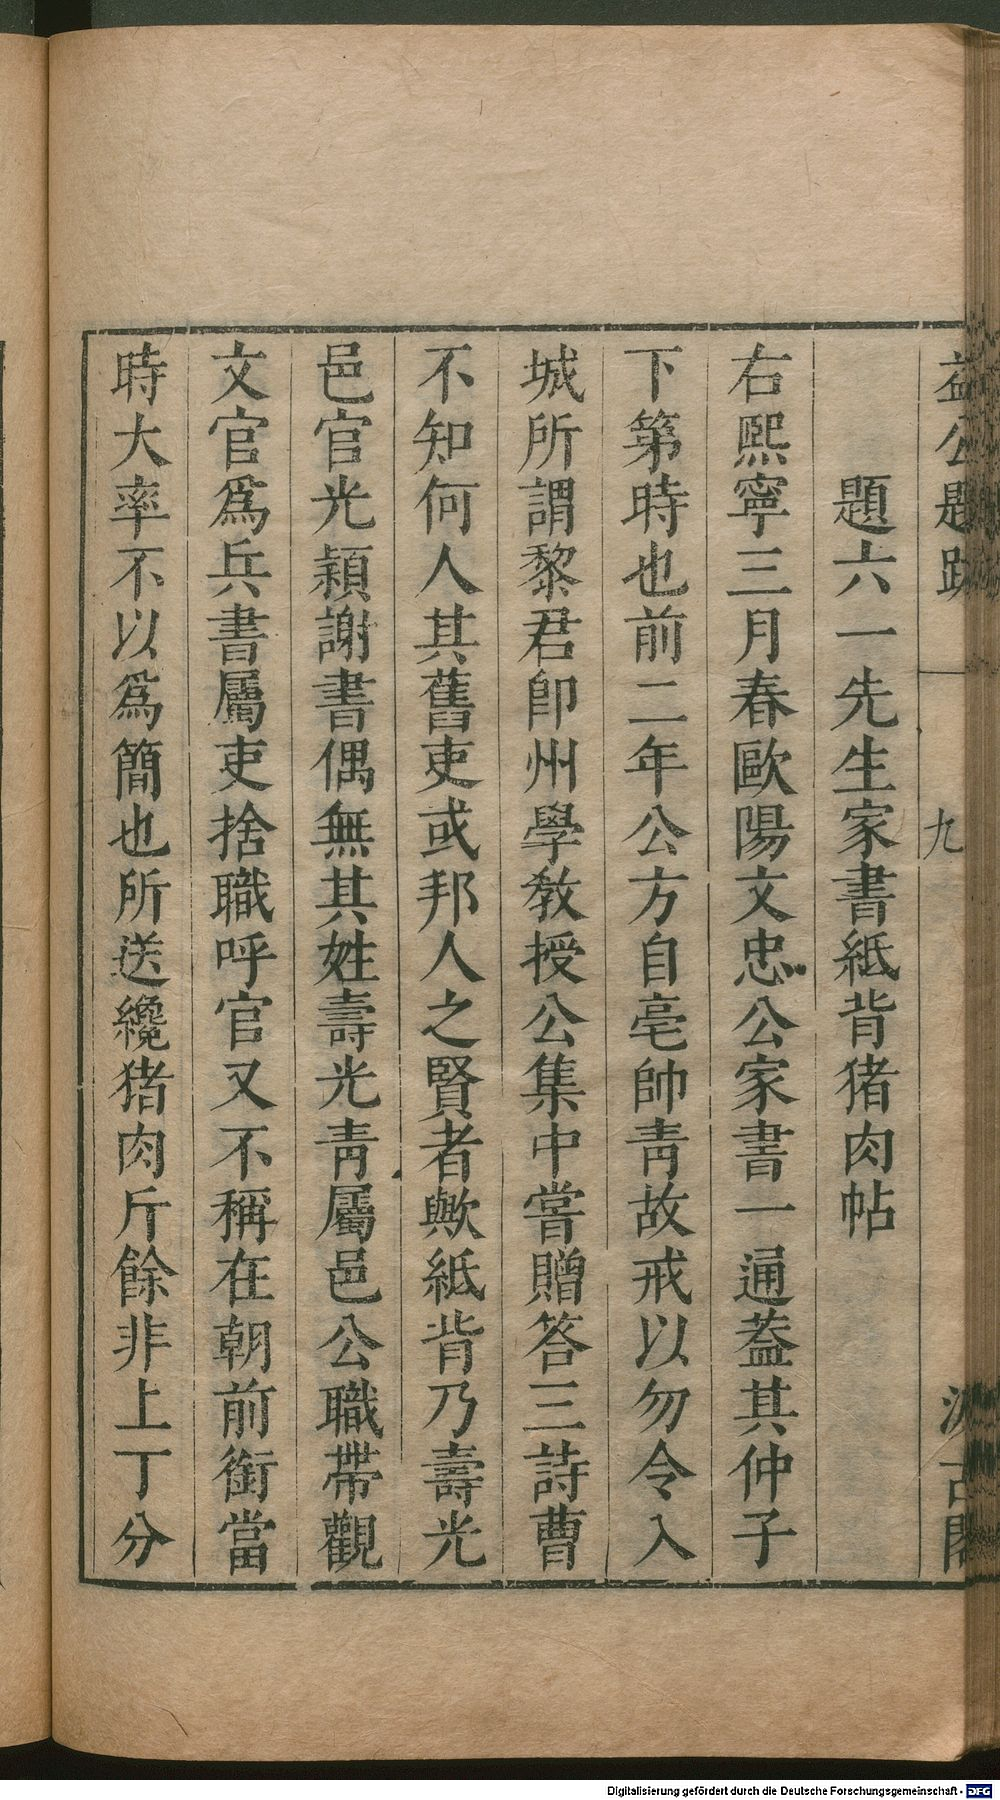 益公題跋 九 汲古閣
題六一先生家書紙背猪肉帖
右熙寧三月春歐陽文忠公家書一通葢其仲子
下第時也前二年公方自亳帥靑故戒以勿令入
城所謂黎君卽州學敎授公集中嘗贈答三詩曹
不知何人其舊吏或邦人之賢者歟紙背乃壽光
邑官光穎謝書偶無其姓壽光靑屬邑公職帶觀
文官爲兵書屬吏捨職呼官又不稱在朝前銜當
時大率不以爲簡也所送纔猪肉斤餘非上丁分
Digitalisierung gefördert durch die Deutsche Forschungsgemeinschaft - DFG